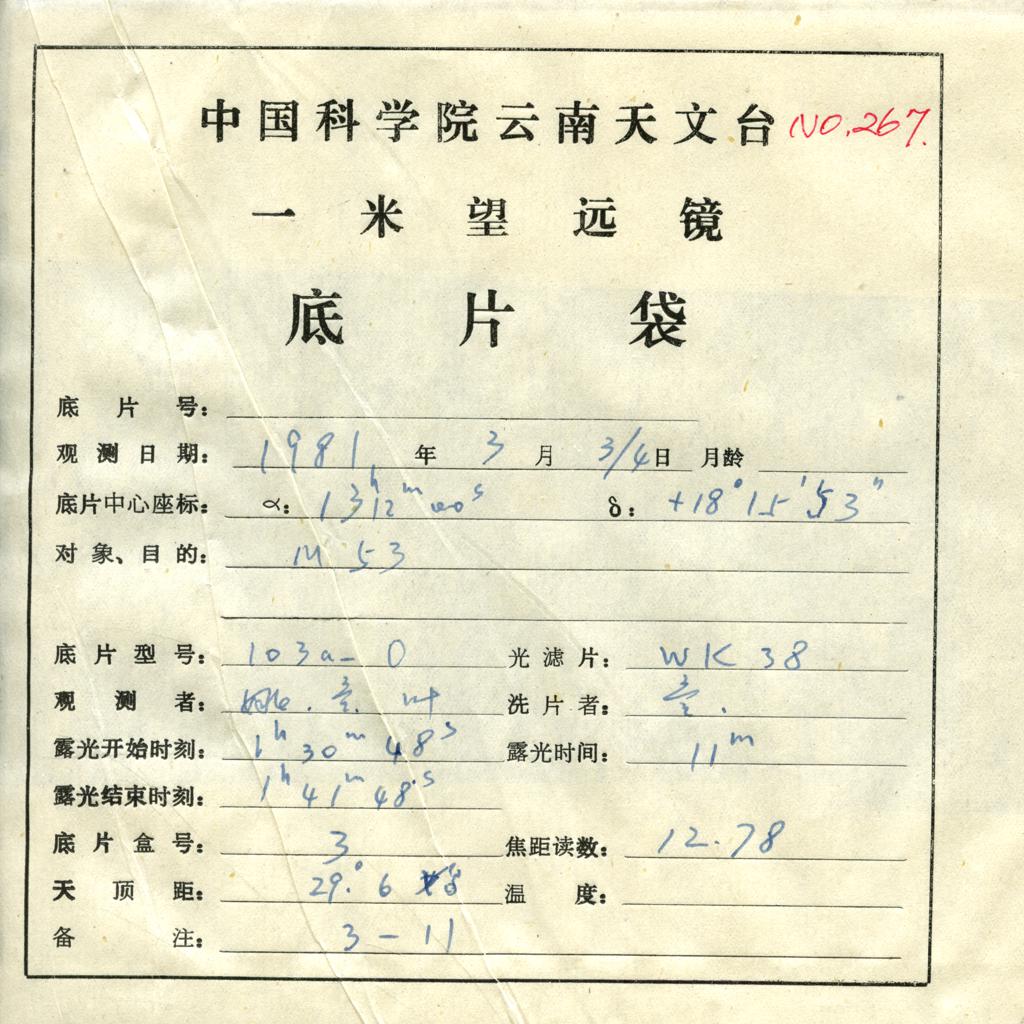 中国科学院云南天文台 NO.267.
一米望远镜
底片袋
底片号：
观测日期： 1981 年 3 月 3/4 日 月龄
底片中心座标： α： 13h12m00s δ： +18°15'53"
对象、目的： M 53
底片型号： 103a-O 光滤片： WK 38
观测者： 叶 洗片者：
露光开始时刻： 1h 30m 48s 露光时间： 11m
露光结束时刻： 1h 41m 48s
底片盒号： 3 焦距读数： 12.78
天顶距： 29°.6 温度：
备注： 3-11